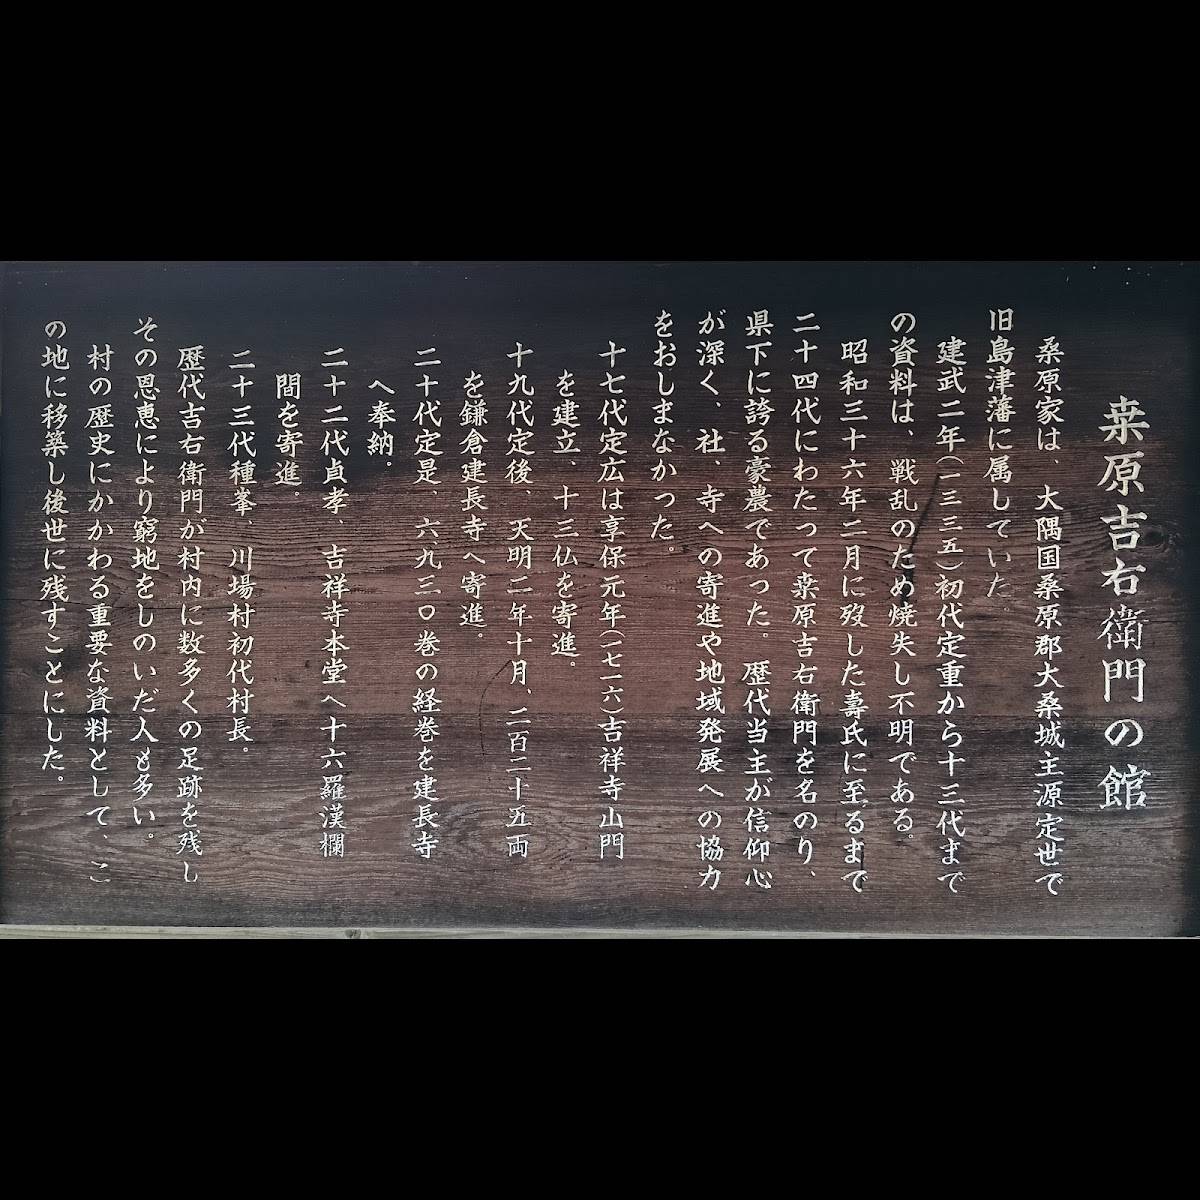 桒原吉右衛門の館
桑原家は、大隅国桑原郡大桑城主源定世で
旧島津藩に属していた
建武二年(一三三五)初代定重から十三代まで
の資料は、戦乱のため焼失し不明である。
昭和三十六年二月に歿した壽氏に至るまで
二十四代にわたって桒原吉右衛門を名のり、
県下に誇る豪農であった。歴代当主が信仰心
が深く、社、寺への寄進や地域発展への協力
をおしまなかった。
十七代定広は享保元年(一七一六)吉祥寺山門
を建立、十三仏を寄進。
十九代定後、天明二年十月、二百二十五両
を鎌倉建長寺へ寄進。
二十代定是、六九三〇巻の経巻を建長寺
へ奉納。
二十二代貞孝、吉祥寺本堂へ十六羅漢欄
間を寄進。
二十三代種峯、川場村初代村長。
歴代吉右衛門が村内に数多くの足跡を残し
その恩恵により窮地をしのいだ人も多い。
村の歴史にかかわる重要な資料として、こ
の地に移築し後世に残すことにした。